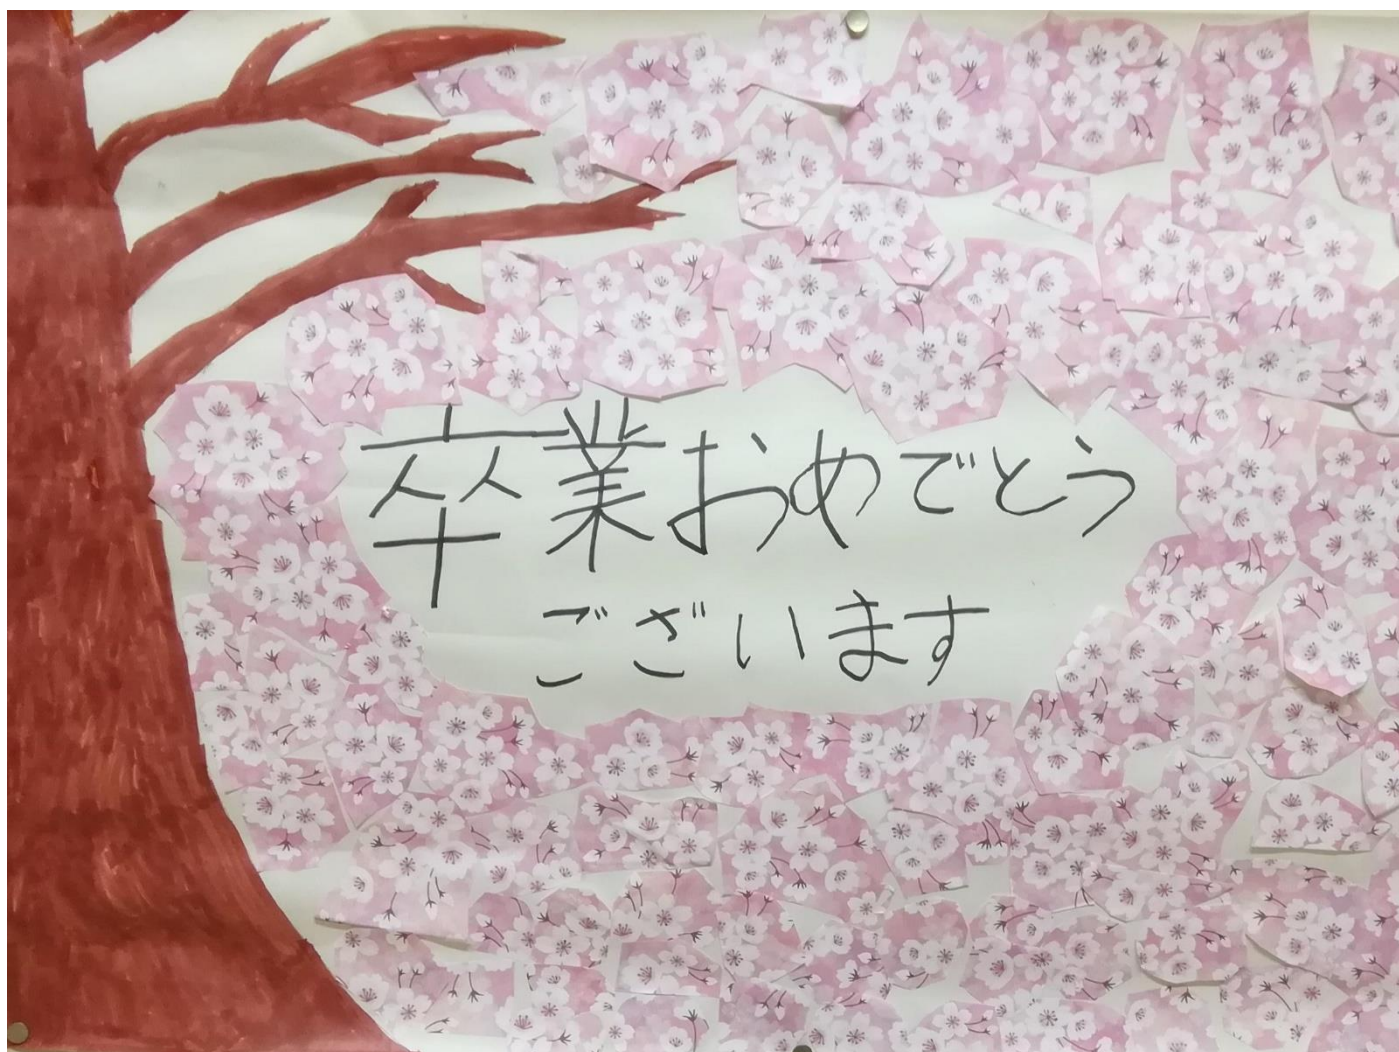 卒業おめでとう
ございます